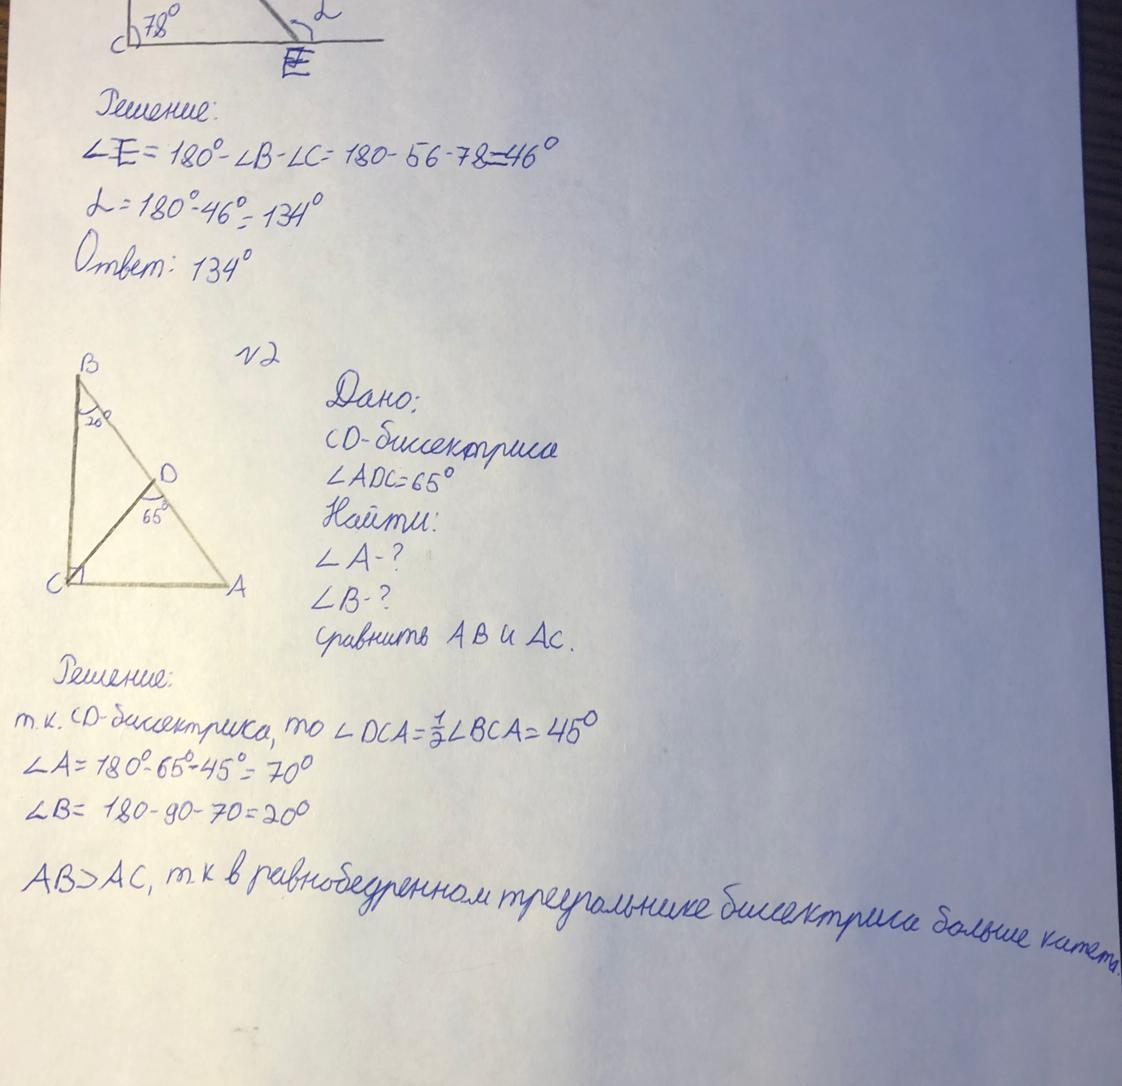 C 78° α
E
Решение:
∠E = 180° - ∠B - ∠C = 180 - 56 - 78 = 46°
α = 180° - 46° = 134°
Ответ: 134°
№2
B
20°
D
65°
C
A
Дано:
CD - биссектриса
∠ADC = 65°
Найти:
∠A - ?
∠B - ?
сравнить AB и AC.
Решение:
т.к. CD - биссектриса, то ∠DCA = 1/2 ∠BCA = 45°
∠A = 180° - 65° - 45° = 70°
∠B = 180 - 90 - 70 = 20°
AB > AC, т к в равнобедренном треугольнике биссектриса больше катета.